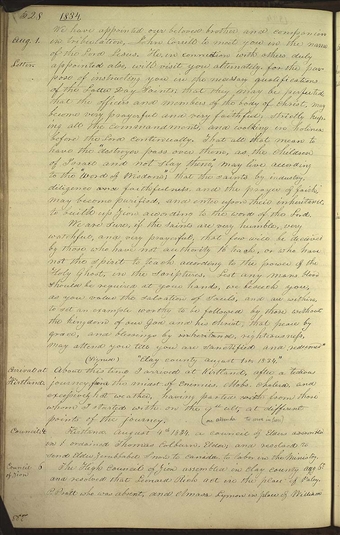 528 1834.
We have appointed our beloved brother and companion
Aug. 1. in tribulation, John Corrill to meet you in the name
of the Lord Jesus. He in connexion with others duly
Letter appointed also will visit you alternately for the pur-
pose of instructing you in the necessary qualifications
of the Latter Day Saints that they may be perfected
that the officers and members of the body of Christ, may
become very prayerful and very faithful, strictly keep-
ing all the commandments, and walking in holiness
before the Lord continually. That all that mean to
have the "destroyer pass over them, as the children
of Israel, and not slay them," may live according
to the "word of Wisdom"; that the saints by industry,
diligence and faithfulness and the prayer of faith
may become purified, and enter upon their inheritance,
to build up Zion according to the word of the Lord.
We are sure, if the saints are very humble, very
watchful, and very prayerful, that few will be deceived
by those who have not authority to teach, or who have
not the spirit to teach according to the power of the
Holy Ghost, in the Scriptures. Lest any man's blood
should be required at your hands, we beseech you,
as you value the salvation of Souls, and are within
to set an example worthy to be followed by those without
the kingdom of our God and his Christ, that peace by
grace, and blessings by righteousness,
may attend you till you are sanctified and redeemed"
(Signed) "Clay county August 1st 1834."
Arrival at About this time I arrived at Kirtland, after a tedious
Kirtland journey from the midst of enemies, Mobs, Cholera, and
excessively hot weather, having parted with from those
whom I started with on the 9th ult, at different
points of the journey.
Council 4 Kirtland August 4th 1834. a council of Elders assembled
and ordained Thomas Colburn, Elder, and resolved to
send Elder Zerubbabel Snow to Canada to labor in the Ministry,
Council 6 The High Council of Zion assembled in Clay county Aug 6th
of Zion and resolved that Leonard Rich act in the place of Parley
P. Pratt who was absent, and Amasa Lyman in place of William